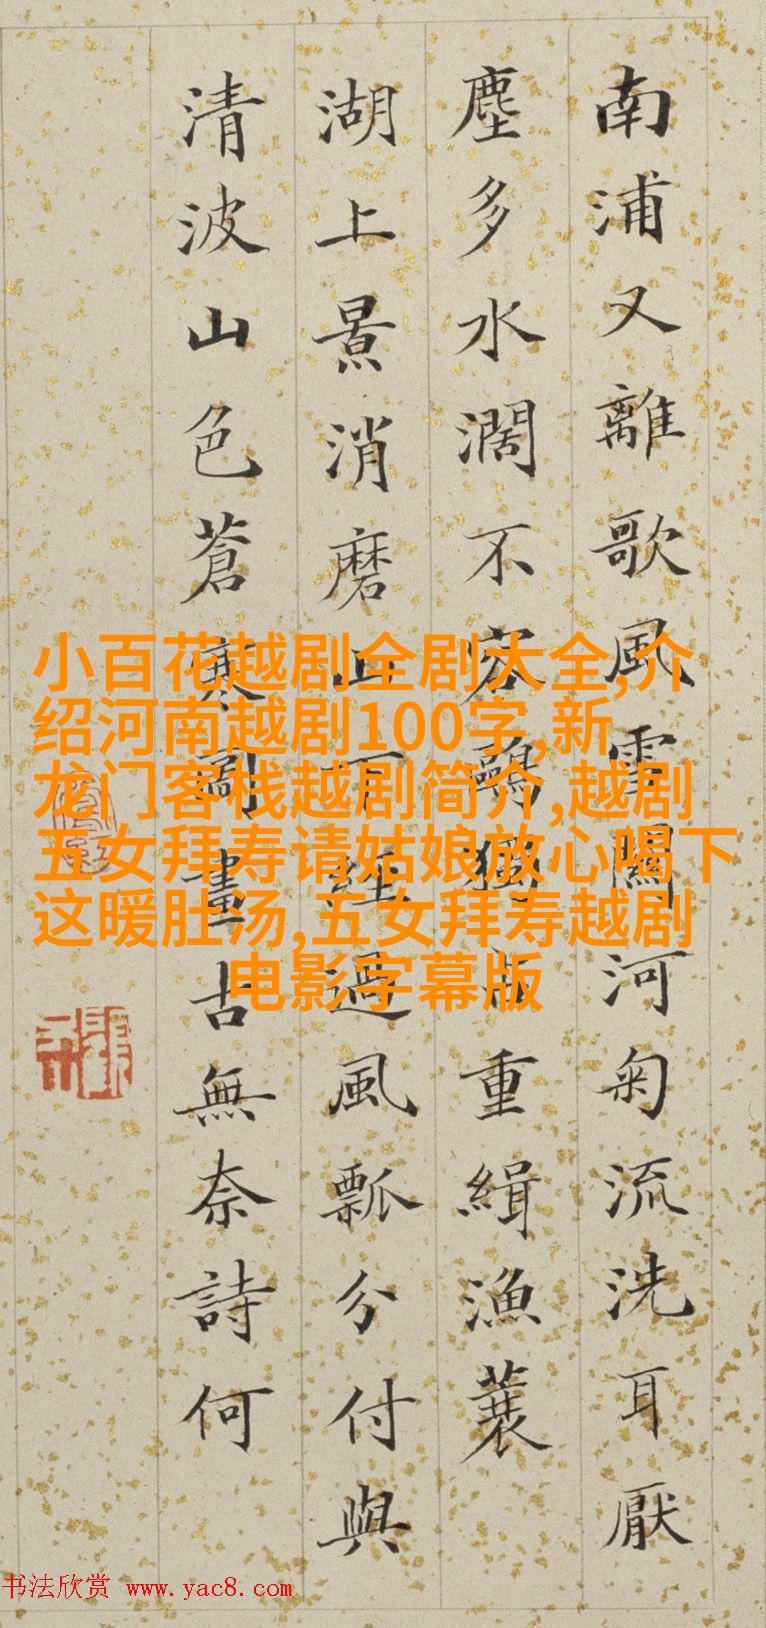 南浦又離歌風雪關河匊流洗耳厭
塵多水濶不容鷗獨重緝漁蓑
湖上景消磨下經過風瓢分付與
清波山色蒼寒畫古無奈詩何
小百花越剧全剧大全,介
绍河南越剧100字,新
龙门客栈越剧简介,越剧
五女拜寿请姑娘放心喝下
这暖肚汤,五女拜寿越剧
电影字幕版
书法欣赏 www.yac8.com